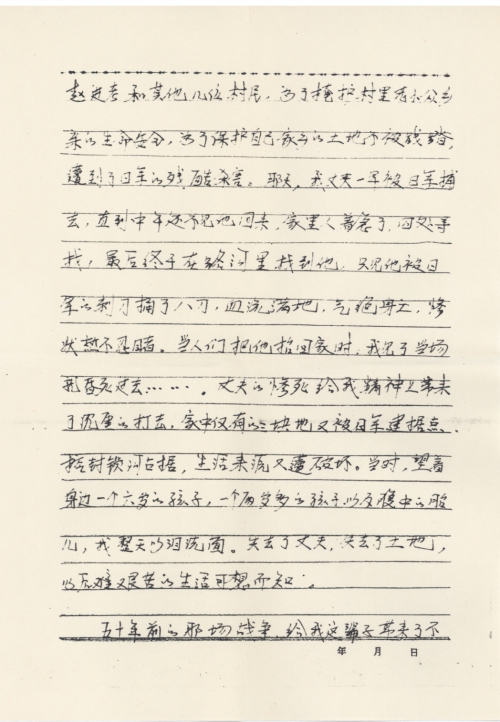 赵更考和其他几位村民，为了掩护村里老小父乡
亲的生命安全，为了保护自己家乡的土地不被践踏，
遭到了日军的残酷杀害。那天，我丈夫一早被日军捕
去，直到中午还不见他回来，家里人着急了，四处寻
找，最后终于在路河里找到他，只见他被日
军的刺刀捅了八刀，血流满地，气绝身亡，惨
状惨不忍睹。当人们把他抬回家时，我见了当场
就昏死过去……。丈夫的惨死给我精神上带来
了沉重的打击，家中仅有的二块地又被日军建据点、
挖封锁河占据，生活来源又遭破坏。当时，望着
身边一个六岁的孩子，一个两岁多的孩子以及腹中的胎
儿，我整天以泪洗面。失去了丈夫，失去了土地，
以后艰苦的生活可想而知。
五十年前的那场战争，给我这辈子带来了不
年 月 日